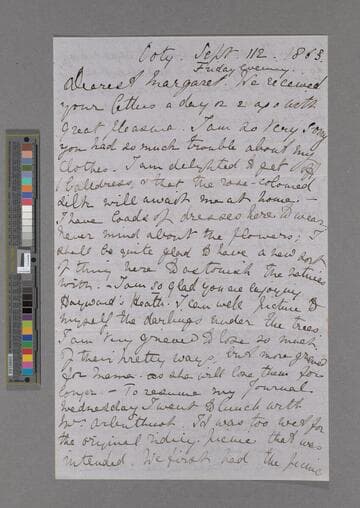 Ooty. Sept 11th. 1863.
Friday Evening.
Dearest Margaret. We received
your letters a day or 2 ago with
great pleasure. I am so very sorry
you had so much trouble about my
clothes. I am delighted to get
balldress, & that the rose-coloured
silk will await me at home -
I have loads of dresses here to wear
never mind about the flowers; I
shall be quite glad to have a new sort
of thing here to astonish the natives
with. - I am so glad you are enjoying
Haywood's Heath. I can well picture to
myself the darlings under the trees.
I am very grieved to lose so much
of their pretty ways, but more grieved
for Mama. as she will lose them for
longer. - To resume my journal
Wednesday I went to lunch with
Mrs Arbuthnot. It was too wet for
the original riding picnic that was
intended. We first had the picnic